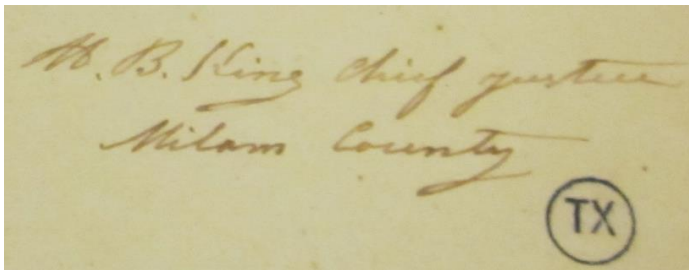 H. B. King chief justice
Milam County
TX